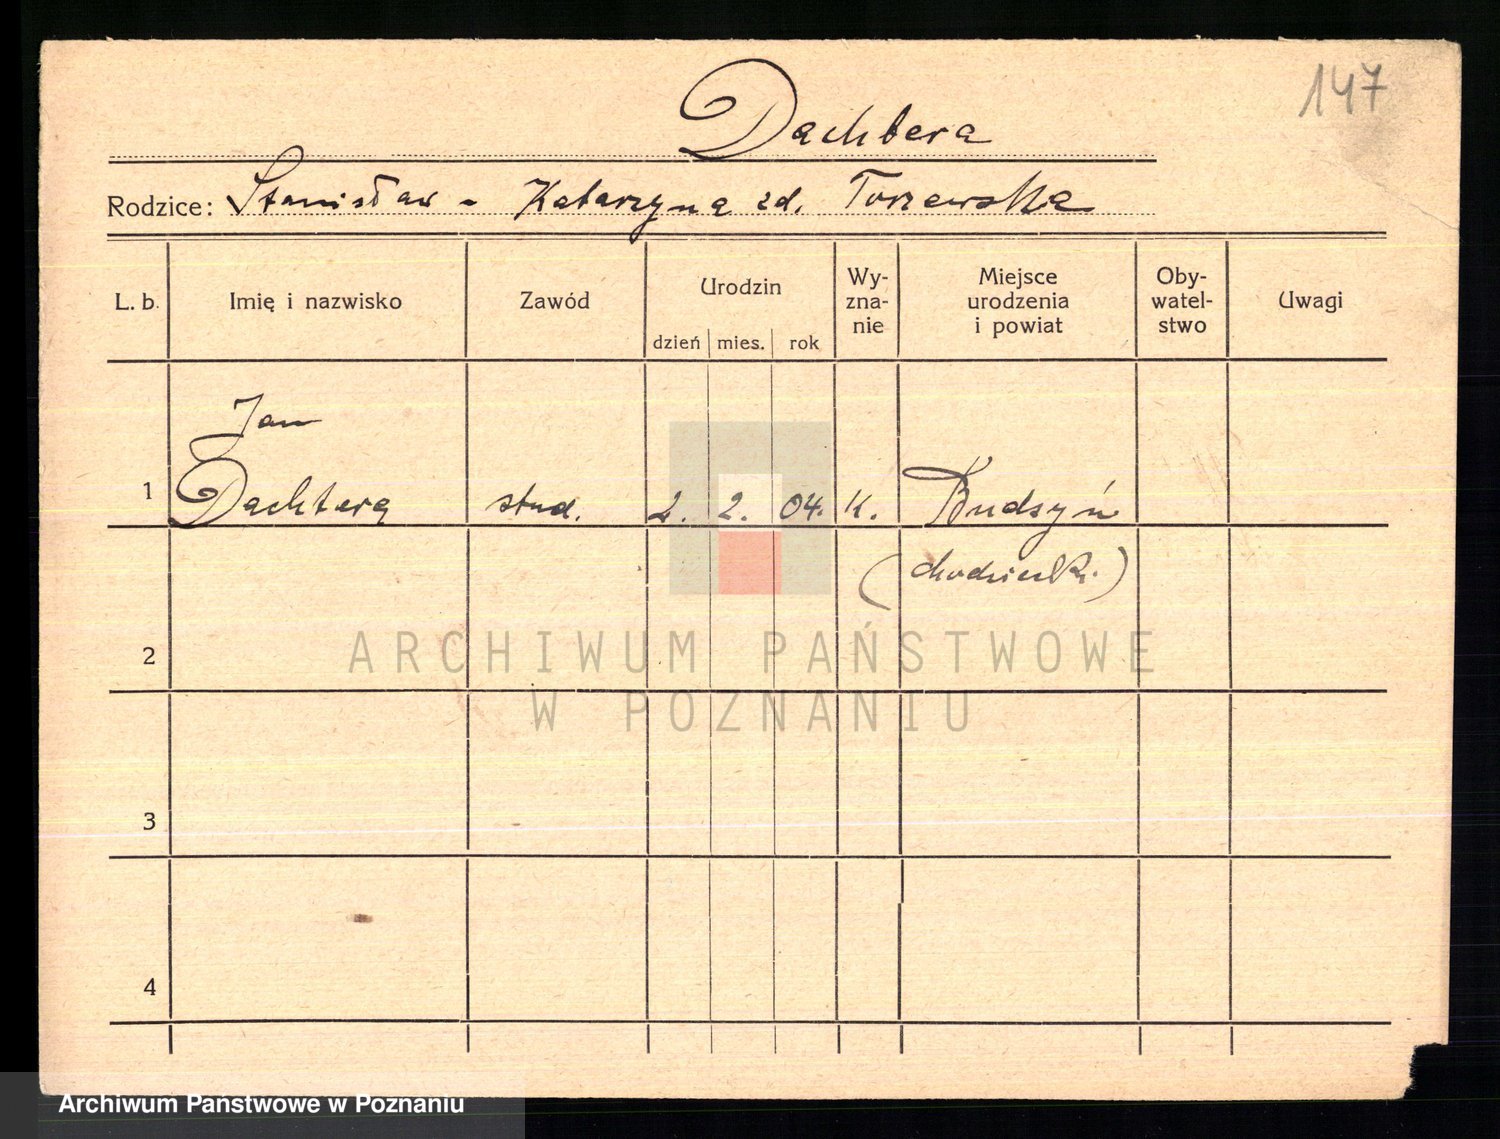 147
Dachtera
Rodzice: Stanisław - Katarzyna zd. Torzewska
L. b. Imię i nazwisko Zawód Urodzin dzień mies. rok Wy-zna-nie Miejsce urodzenia i powiat Oby-watel-stwo Uwagi
Jan
1 Dachtera stud. 2. 2. 04. K. Budzyń
(chodzieski.)
2
ARCHIWUM PAŃSTWOWE
W POZNANIU
3
4
Archiwum Państwowe w Poznaniu